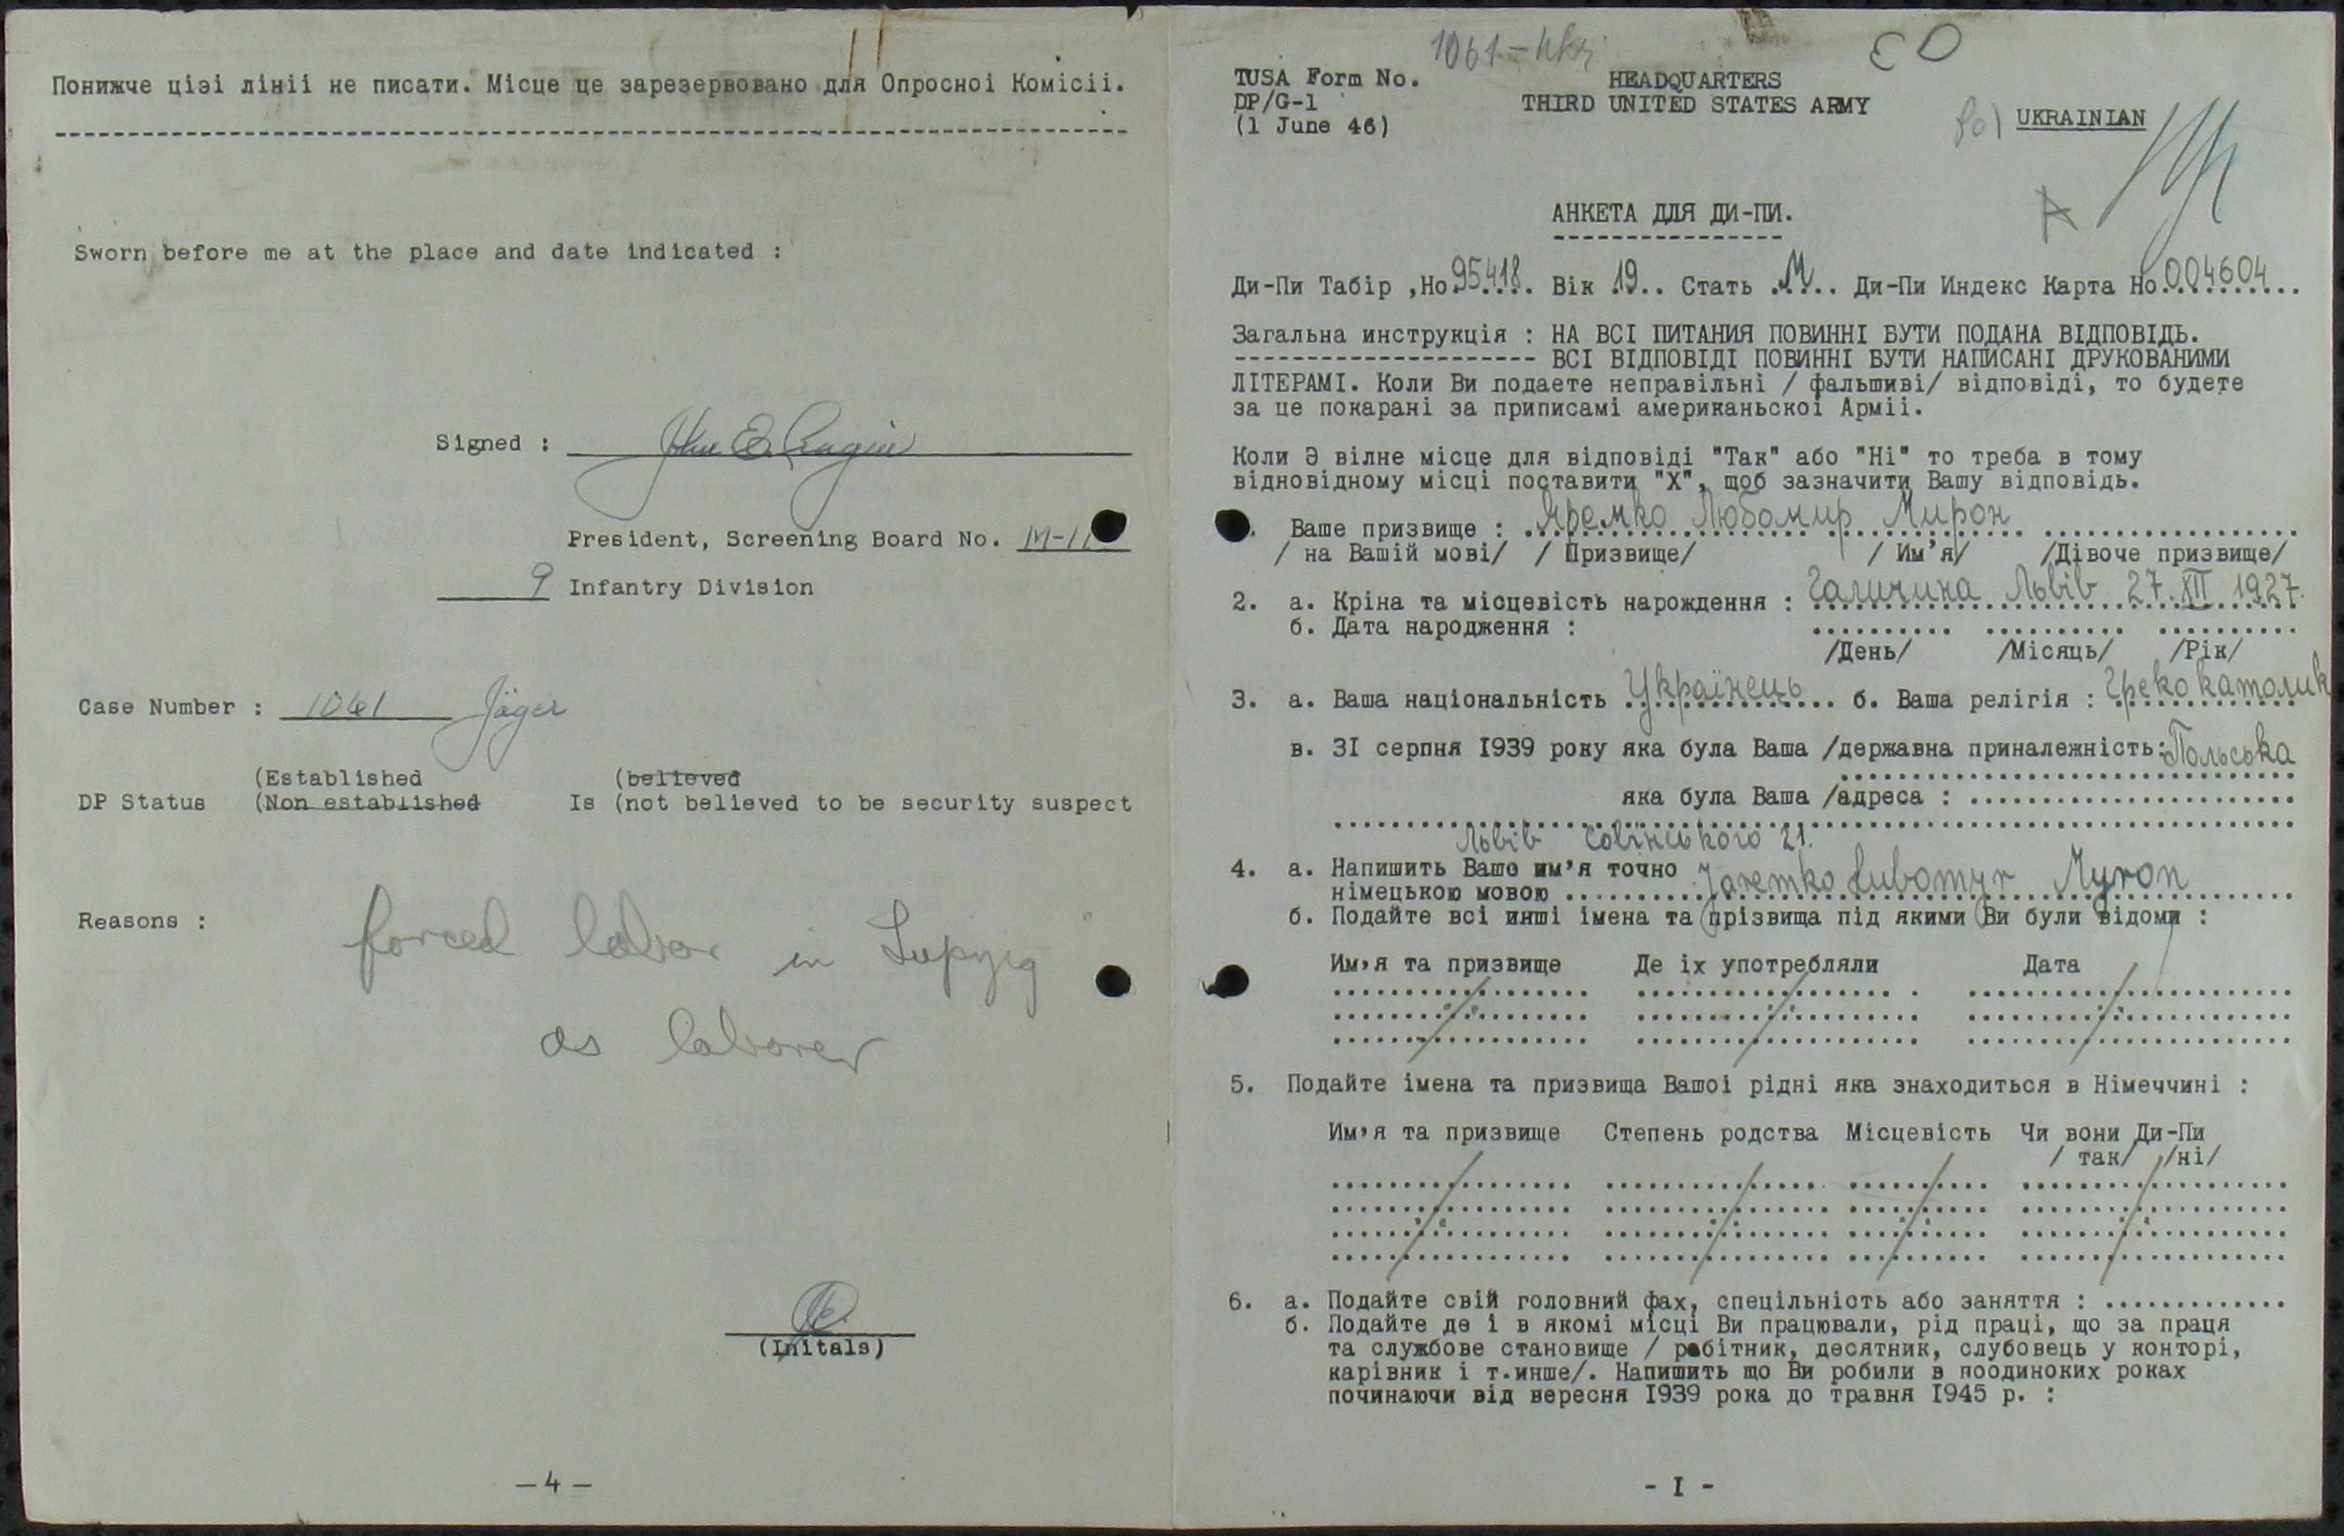 Понижче цієі лініі не писати. Місце це зарезервовано для Опросноі Комісіі.
Sworn before me at the place and date indicated :
Signed :
President, Screening Board No. M-11
9 Infantry Division
Case Number : 1061 Jäger
(Established (believed
DP Status (Non established Is (not believed to be security suspect
Reasons : forced labor in Leipzig
as laborer
(Initals)
- 4 -
1061-Ukr.
TUSA Form No. HEADQUARTERS
DP/G-1 THIRD UNITED STATES ARMY
(1 June 46) UKRAINIAN
A
АНКЕТА ДЛЯ ДИ-ПИ.
Ди-Пи Табір ,Но 95418 Вік 19 Стать М Ди-Пи Индекс Карта Но 004604
Загальна инструкція : НА ВСІ ПИТАНИЯ ПОВИННІ БУТИ ПОДАНА ВІДПОВІДЬ.
ВСІ ВІДПОВІДІ ПОВИННІ БУТИ НАПИСАНІ ДРУКОВАНИМИ
ЛІТЕРАМІ. Коли Ви подаете неправільні / фальшиві/ відповіді, то будете
за це покарані за приписамі американьскоі Арміі.
Коли Э вілне місце для відповіді "Так" або "Ні" то треба в тому
відновідному місці поставити "Х", щоб зазначити Вашу відповідь.
Ваше призвище : Яремко Любомир Мирон
/ на Вашій мові/ / Призвище/ / Им'я/ /Дівоче призвище/
2. а. Кріна та місцевість нарождення : Галичина Львів 27. XII 1927.
б. Дата народження :
/День/ /Місяць/ /Рік/
3. а. Ваша національність Українець б. Ваша релігія : Греко католик
в. 3І серпня І939 року яка була Ваша /державна приналежність: Польська
яка була Ваша /адреса :
Львів Совінського 21.
4. а. Напишить Ваше им'я точно Jaremko Lubomyr Myron
німецькою мовою
б. Подайте всі инші імена та прізвища під якими Ви були відоми :
Им,я та призвище Де іх употребляли Дата
5. Подайте імена та призвища Вашоі рідні яка знаходиться в Німеччині :
Им,я та призвище Степень родства Місцевість Чи вони Ди-Пи
/ так/ /ні/
6. а. Подайте свій головний фах, спецільність або заняття :
б. Подайте де і в якомі місці Ви працювали, рід праці, що за праця
та службове становище / робітник, десятник, слубовець у конторі,
карівник і т.инше/. Напишить що Ви робили в поодиноких роках
починаючи від вересня І939 рока до травня І945 р. :
- I -